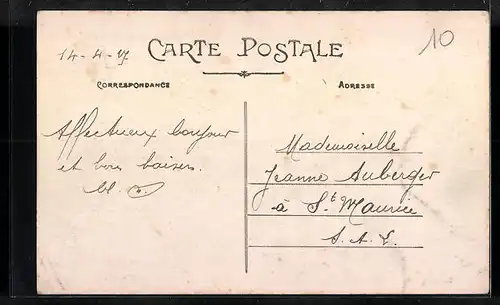 14-4-17
CARTE POSTALE
10
CORRESPONDANCE
ADRESSE
Affectueux bonjour
et bons baisers.
Mademoiselle
Jeanne Auberger
à St Maurice
S. A. L.